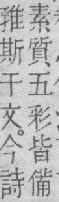 素質五彩皆備
雅斯干文。今詩